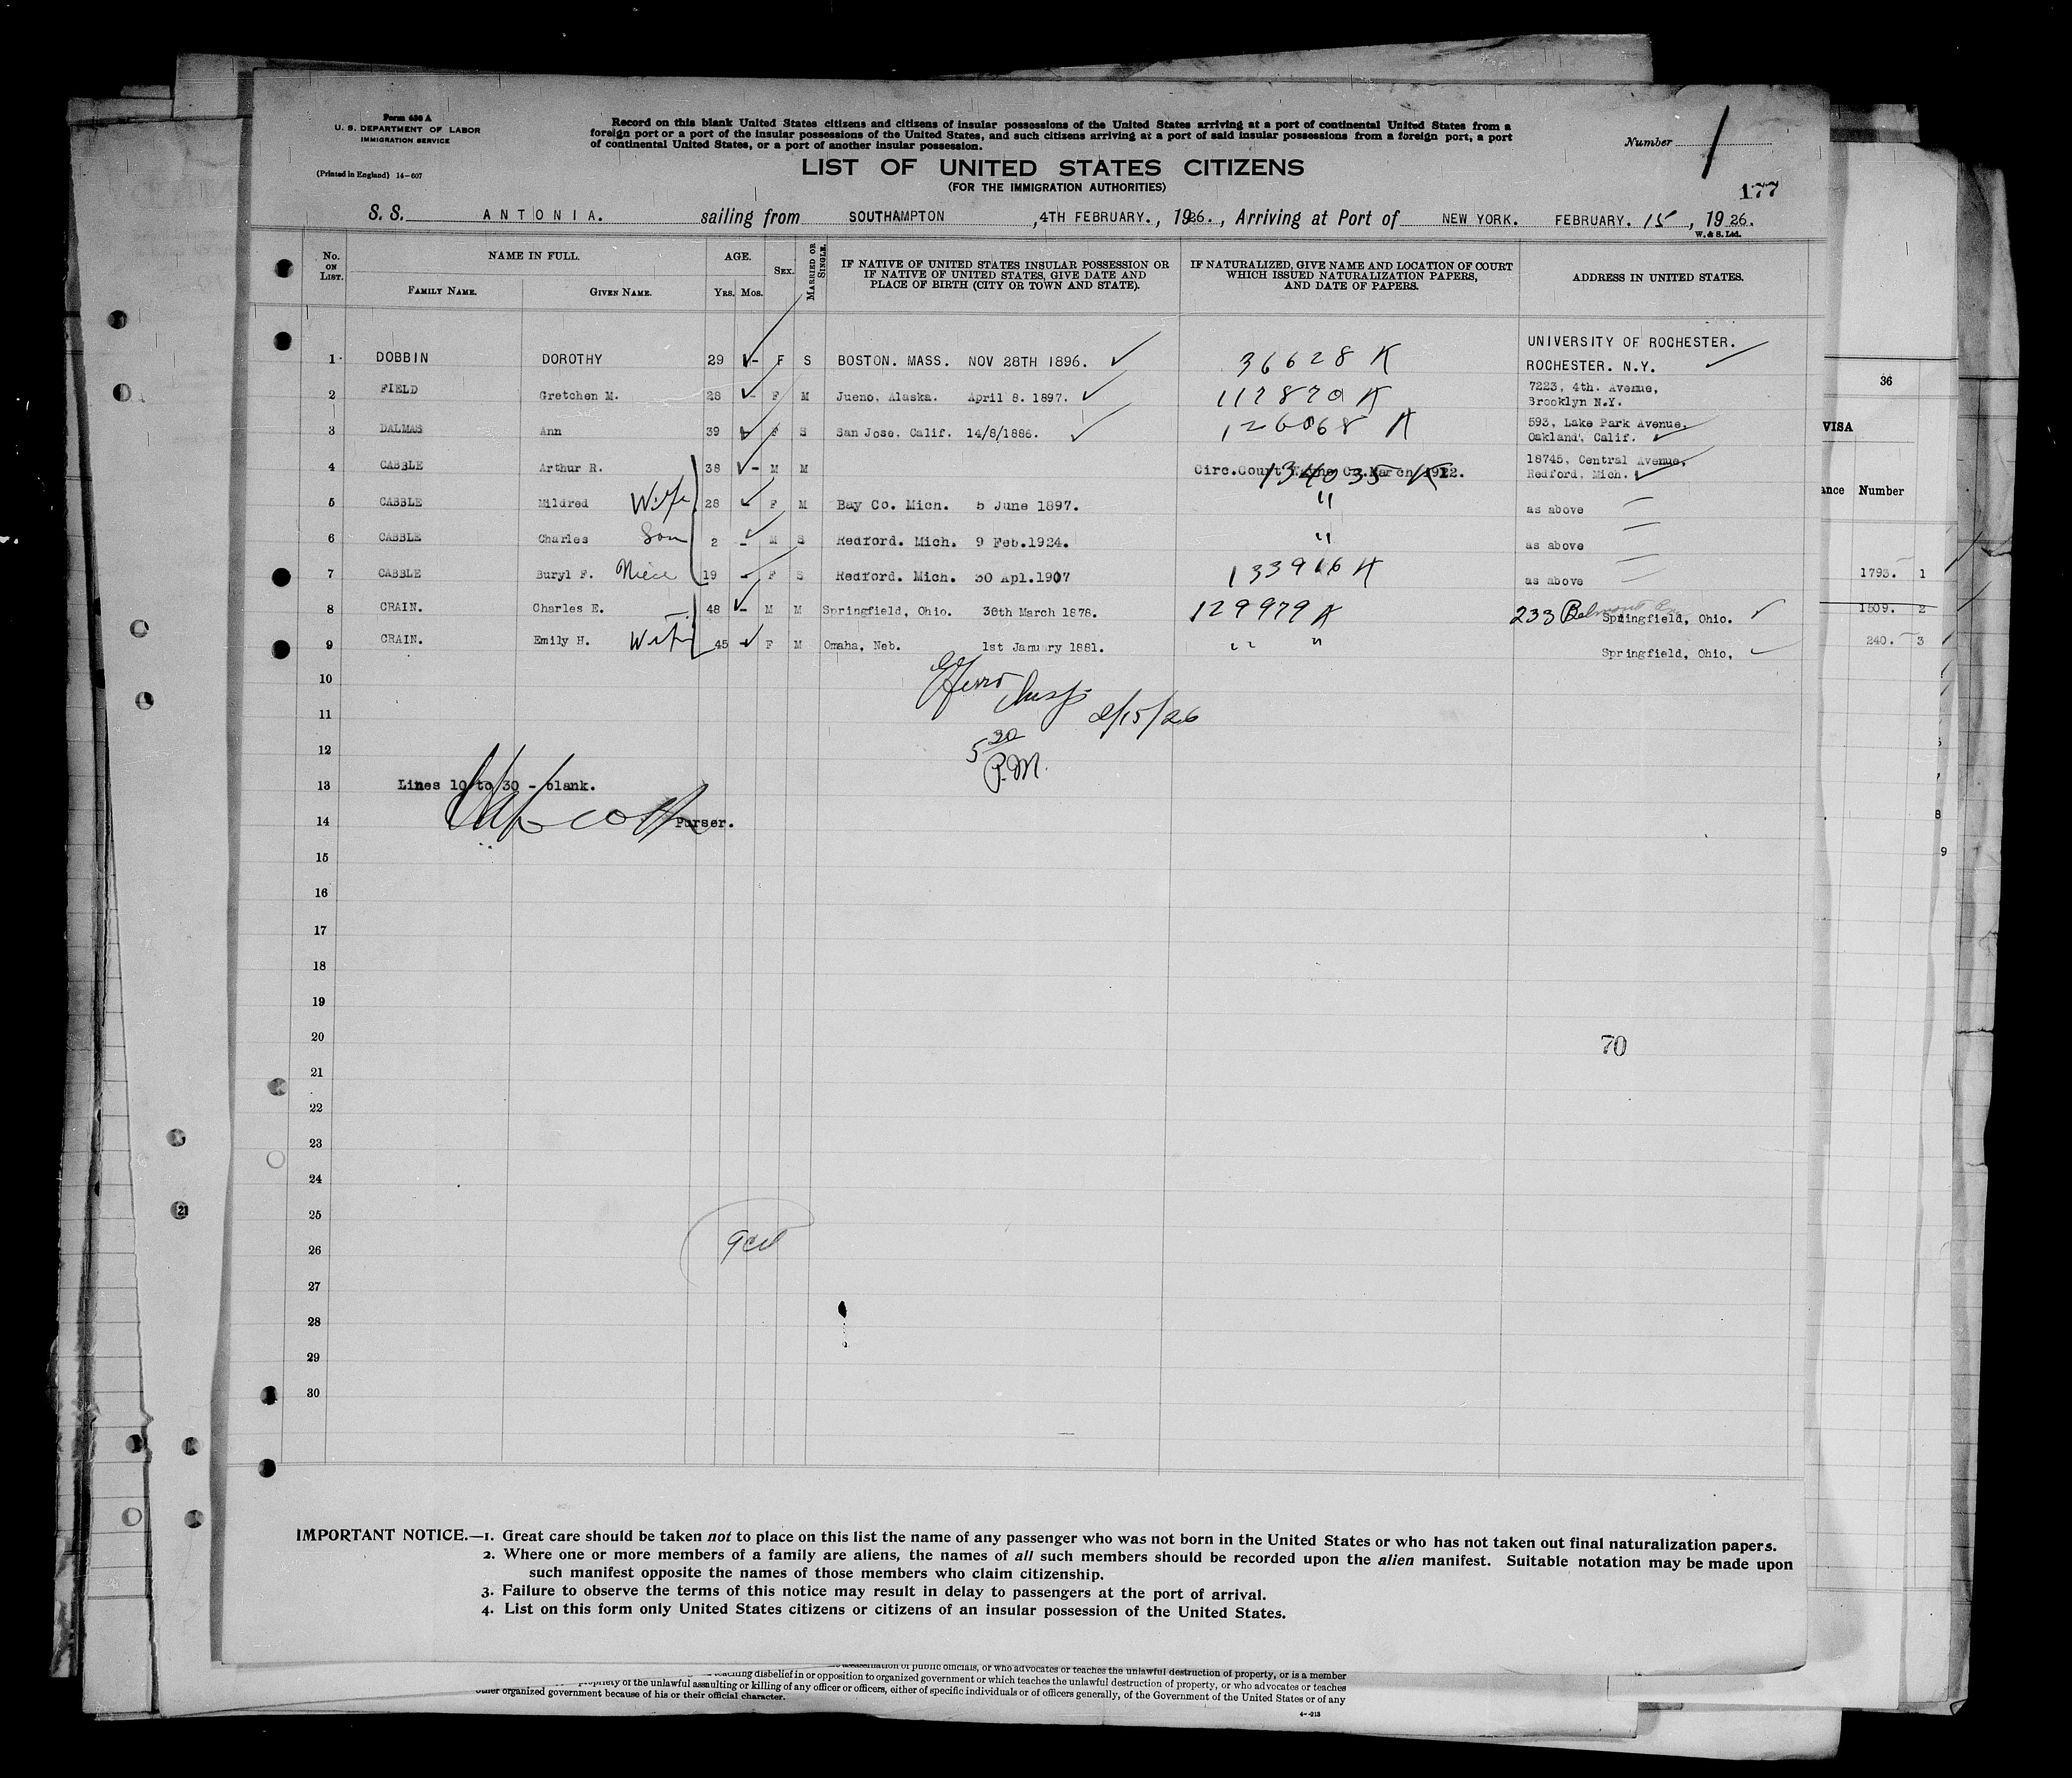 Form 630 A
U. S. DEPARTMENT OF LABOR
IMMIGRATION SERVICE
(Printed in England) 14-607
Record on this blank United States citizens and citizens of insular possessions of the United States arriving at a port of continental United States from a
foreign port or a port of the insular possessions of the United States, and such citizens arriving at a port of said insular possessions from a foreign port, a port
of continental United States, or a port of another insular possession.
Number 1
177
LIST OF UNITED STATES CITIZENS
(FOR THE IMMIGRATION AUTHORITIES)
S. S. ANTONIA. sailing from SOUTHAMPTON, 4TH FEBRUARY., 1926., Arriving at Port of NEW YORK. FEBRUARY. 15, 1926.
W. & S. Ltd.
No. ON LIST.
NAME IN FULL.
FAMILY NAME. GIVEN NAME.
AGE.
YRS. MOS.
SEX.
MARRIED OR SINGLE.
IF NATIVE OF UNITED STATES INSULAR POSSESSION OR
IF NATIVE OF UNITED STATES, GIVE DATE AND
PLACE OF BIRTH (CITY OR TOWN AND STATE).
IF NATURALIZED, GIVE NAME AND LOCATION OF COURT
WHICH ISSUED NATURALIZATION PAPERS,
AND DATE OF PAPERS.
ADDRESS IN UNITED STATES.
1 DOBBIN DOROTHY 29 - F S BOSTON. MASS. NOV 28TH 1896. 36628 K UNIVERSITY OF ROCHESTER.
ROCHESTER. N.Y.
2 FIELD Gretchen M. 28 - F M Jueno, Alaska. April 8. 1897. 112870 K 7223, 4th. Avenue,
Brooklyn N.Y.
3 DALMAS Ann 39 - F S San Jose, Calif. 14/8/1886. 126068 K 593, Lake Park Avenue,
Oakland, Calif.
4 CABBLE Arthur R. 38 - M M Circ.Court Wayne Co.March 1922. 134035 K 18745, Central Avenue,
Redford, Mich.
5 CABBLE Mildred Wife 28 F M Bay Co. Mich. 5 June 1897. " as above
6 CABBLE Charles Son 2 - M S Redford. Mich. 9 Feb.1924. " as above
7 CABBLE Buryl F. Niece 19 - F S Redford. Mich. 30 Apl.1907 133916 K as above
8 CRAIN. Charles E. 48 - M M Springfield, Ohio. 30th March 1878. 129979 K 233 Belmont Av. Springfield, Ohio.
9 CRAIN. Emily H. Wife 45 - F M Omaha, Neb. 1st January 1881. " " Springfield, Ohio,
10
11
2/15/26
12
5 30
P.M.
13 Lines 10 to 30 - blank.
14 Purser.
15
16
17
18
19
20
70
21
22
23
24
25
26
27
28
29
30
IMPORTANT NOTICE.—1. Great care should be taken not to place on this list the name of any passenger who was not born in the United States or who has not taken out final naturalization papers.
2. Where one or more members of a family are aliens, the names of all such members should be recorded upon the alien manifest. Suitable notation may be made upon
such manifest opposite the names of those members who claim citizenship.
3. Failure to observe the terms of this notice may result in delay to passengers at the port of arrival.
4. List on this form only United States citizens or citizens of an insular possession of the United States.
36
VISA
Number
1793. 1
1509. 2
240. 3
8
9
21
of public officials, or who advocates or teaches the unlawful destruction of property, or is a member
teaching disbelief in or opposition to organized government or which teaches the unlawful destruction of property, or who advocates or teaches
propriety of the unlawful assaulting or killing of any officer or officers, either of specific individuals or of officers generally, of the Government of the United States or of any
other organized government because of his or their official character.
4-213